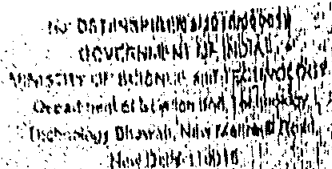 GOVERNMENT OF INDIA
MINISTRY OF SCIENCE AND TECHNOLOGY
Department of Science and Technology
Technology Bhavan, New Mehrauli Road
New Delhi-110016